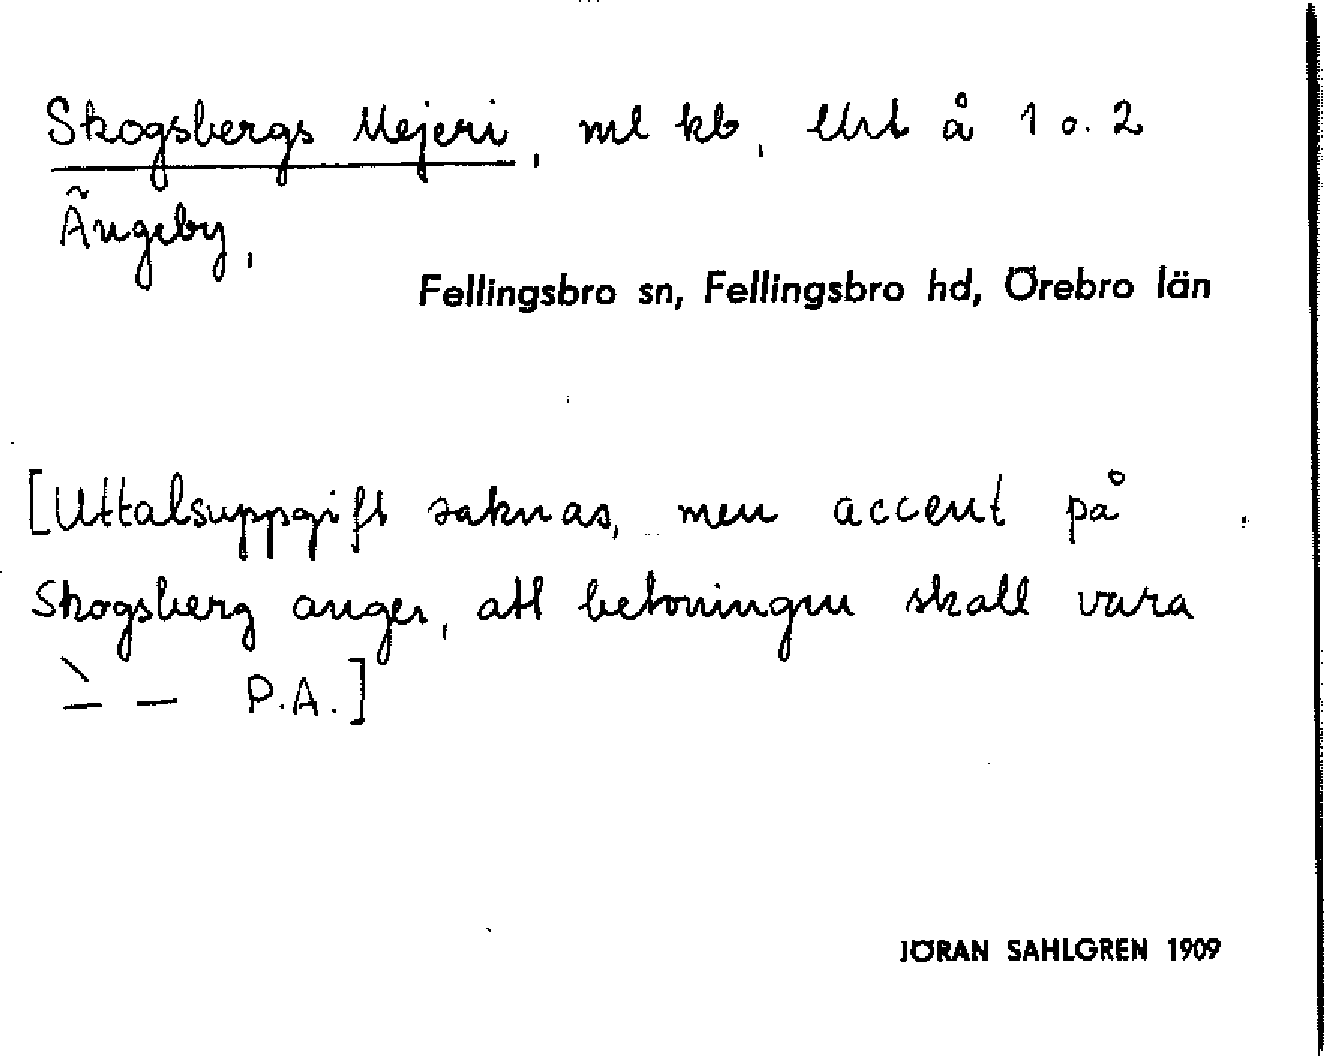 Skogsbergs Mejeri, ml kb, å 1 o. 2
Ängeby,
Fellingsbro sn, Fellingsbro hd, Örebro län
[Uttalsuppgift saknas, men accent på
Skogsberg anger, att betoningen skall vara
—̀ — P.A.]
JÖRAN SAHLGREN 1909